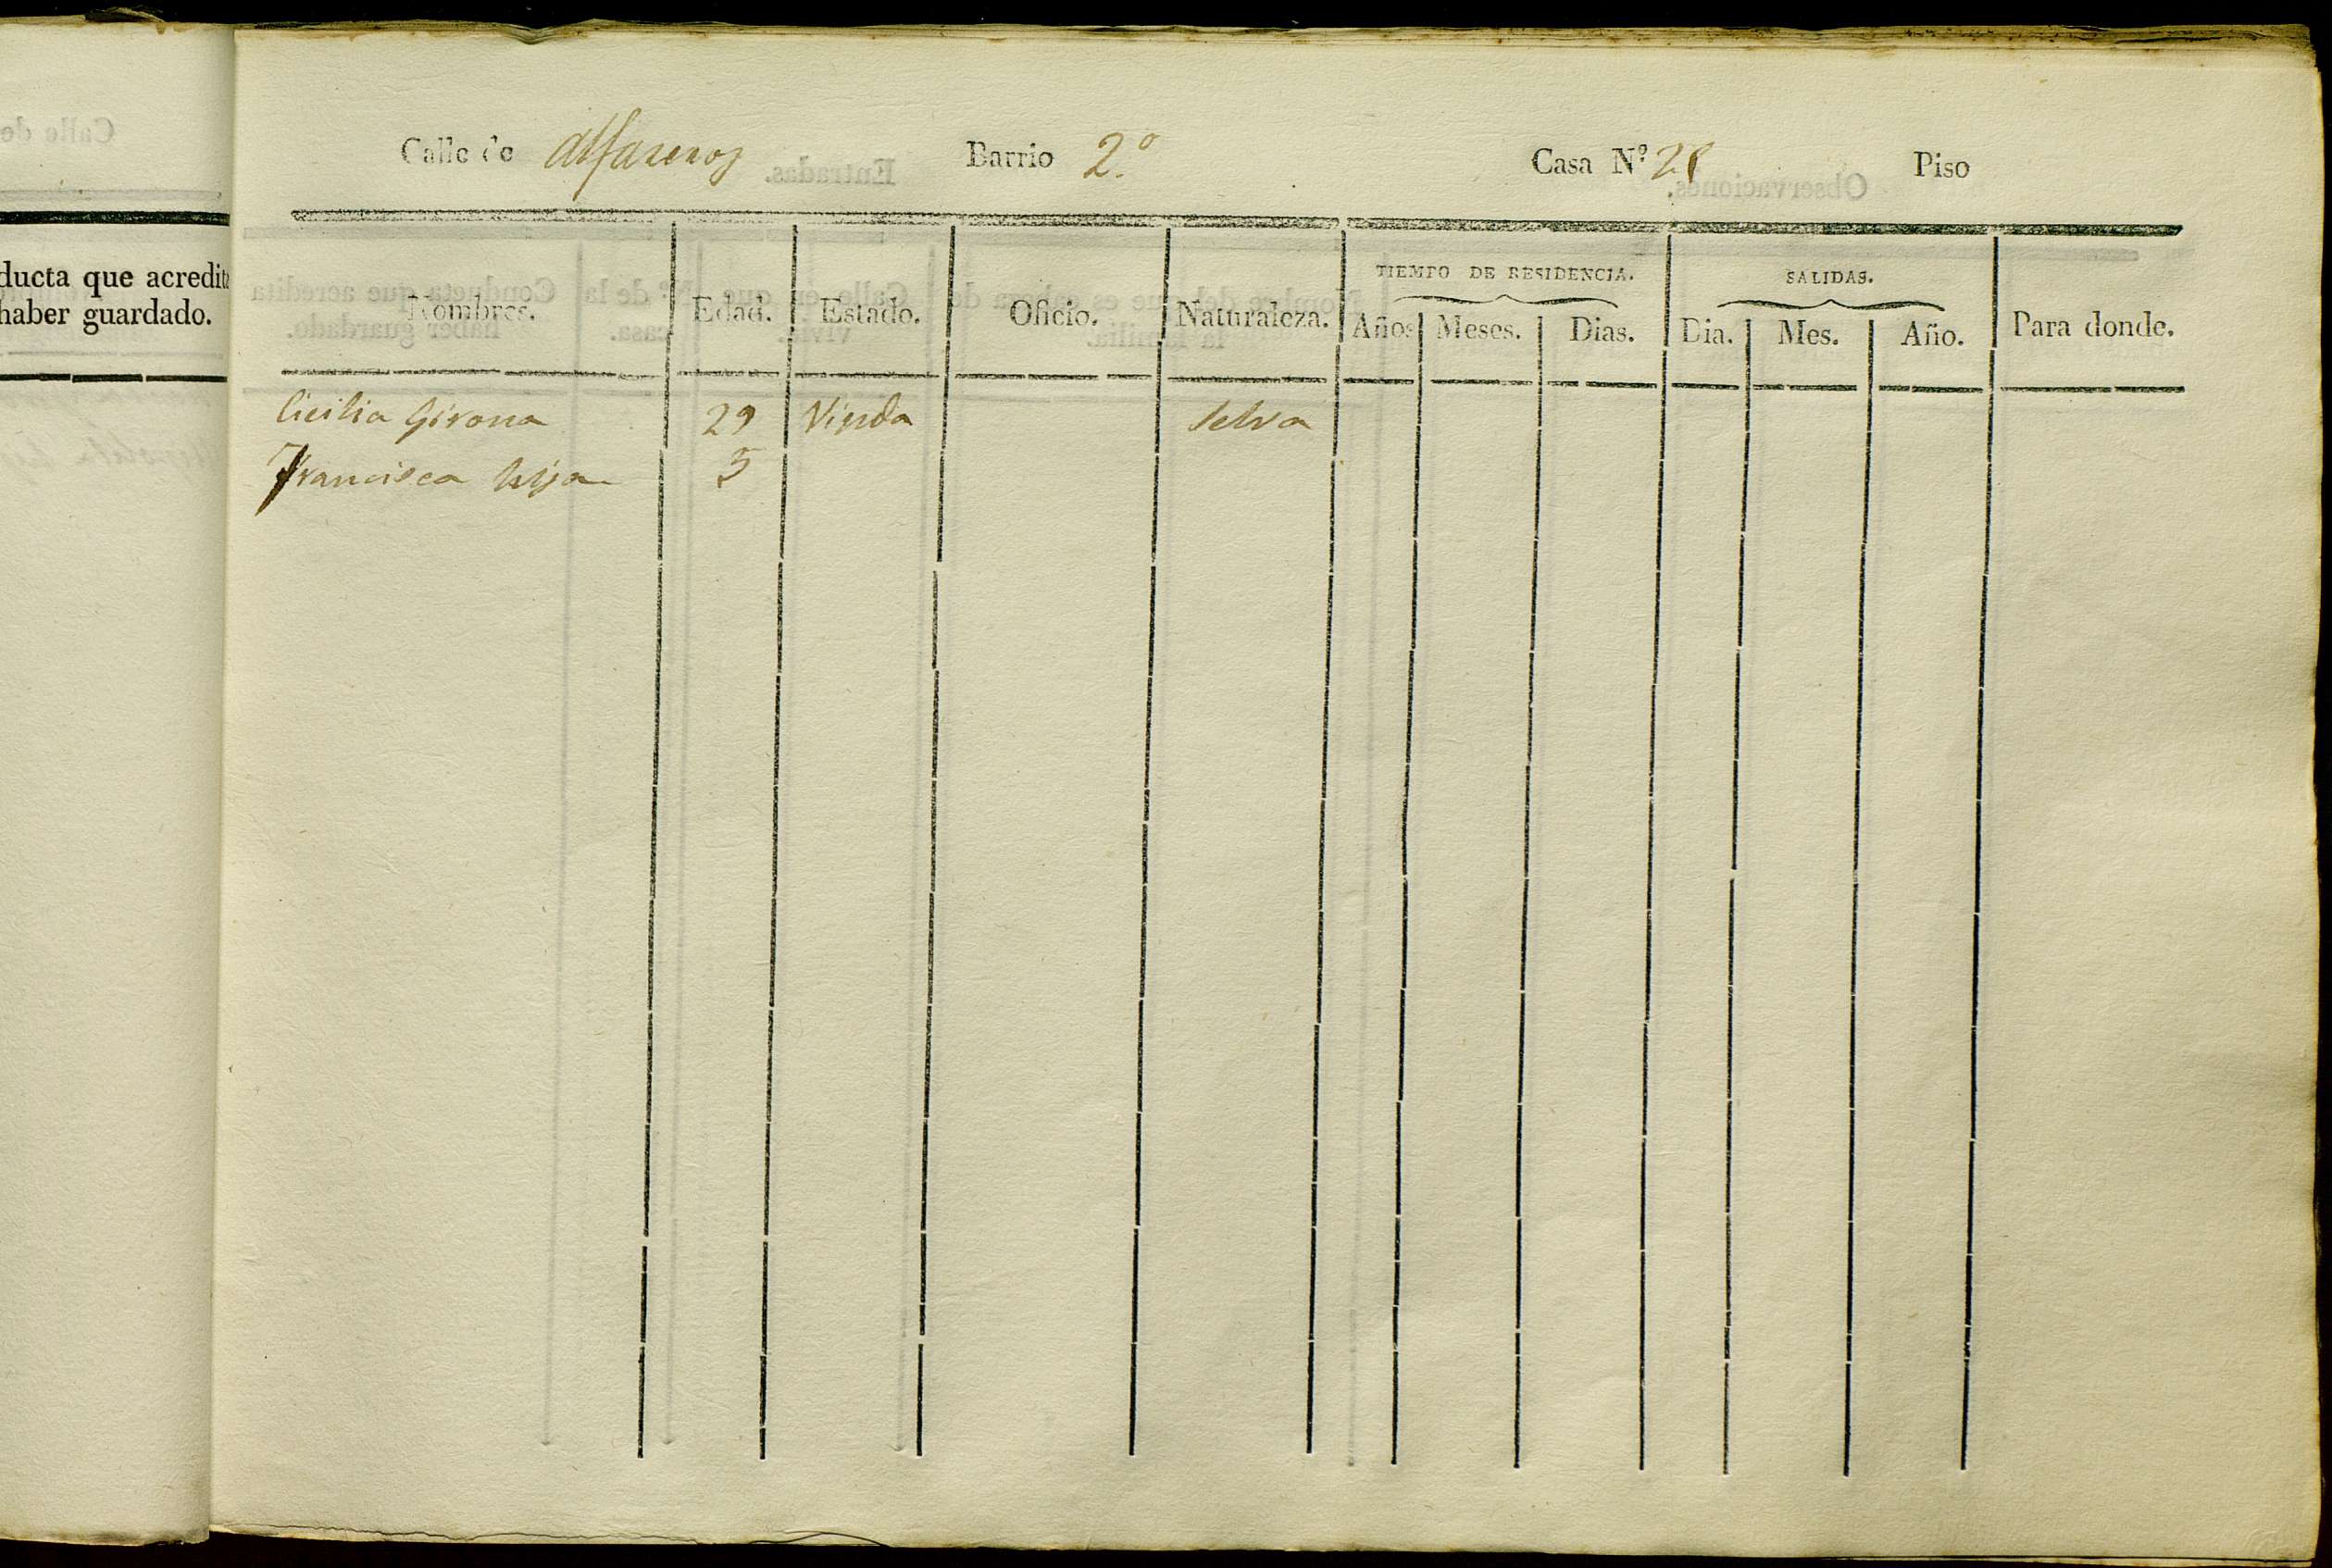 Calle de Alfareros Barrio 2.º Casa Nº 28 Piso
ducta que acredita
haber guardado.
TIEMPO DE RESIDENCIA. SALIDAS.
Nombres. Edad. Estado. Oficio. Naturaleza. Años Meses. Dias. Dia. Mes. Año. Para donde.
Cicilia Girona 29 Viuda Selva
Francisca hija 5